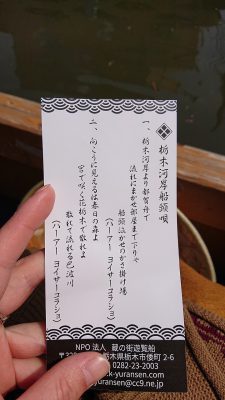 栃木河岸船頭唄
一、栃木河岸より都賀舟で
流れにまかせ部屋まで下りや
船頭泣かせのかさ掛け場
(ハーアー ヨイサーコラショ)
二、向こうに見えるは春日の森よ
宮で咲く花栃木で散れよ
散れて流れる巴波川
(ハーアー ヨイサーコラショ)
NPO 法人 蔵の街遊覧船
栃木県栃木市倭町 2-6
0282-23-2003
-yuransen@cc9.ne.jp